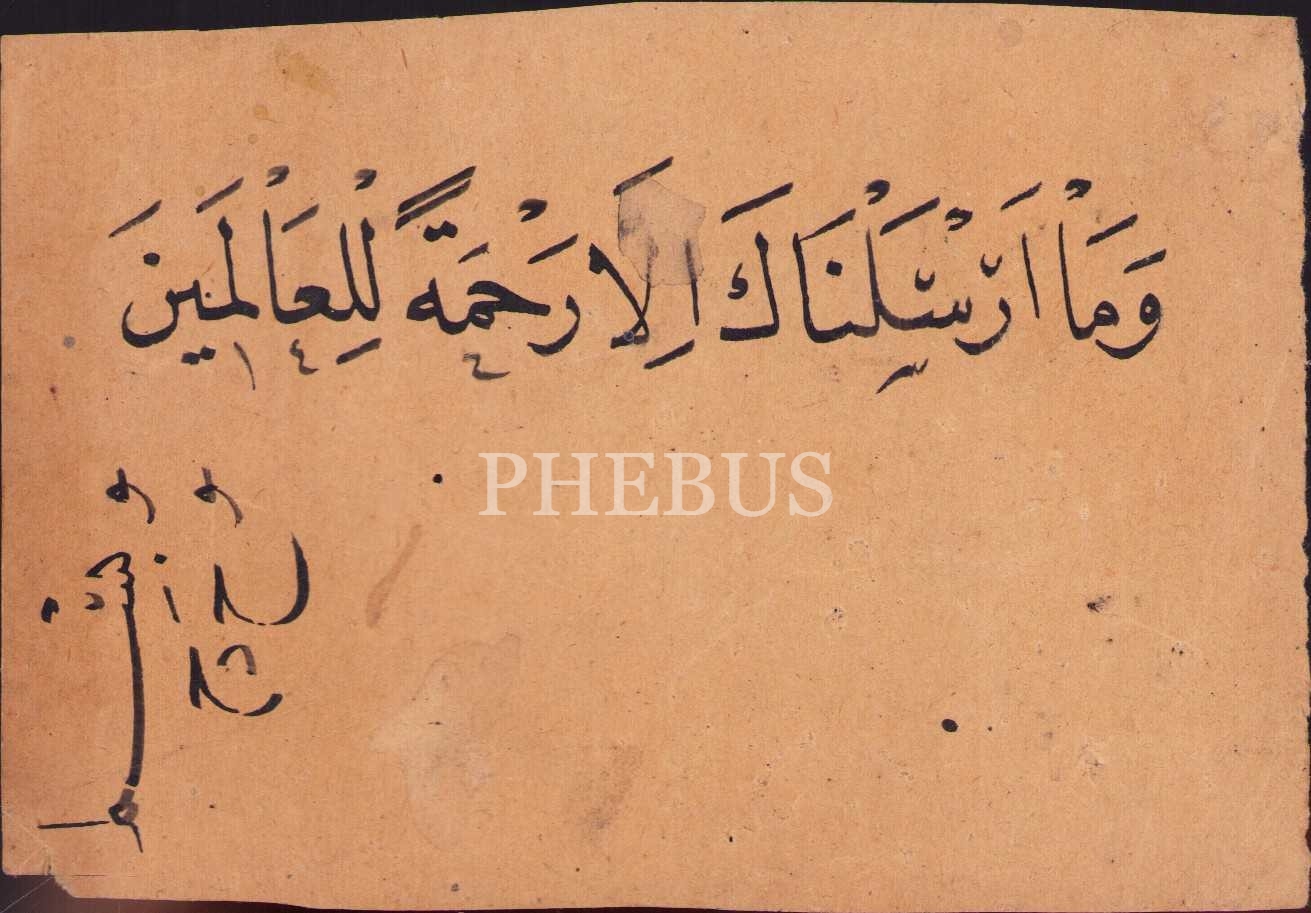 وَمَاْ اَرْسَلْنَاكَ اِلَا رَحْمَةً لِلْعَاْلَمَينَ
PHEBUS